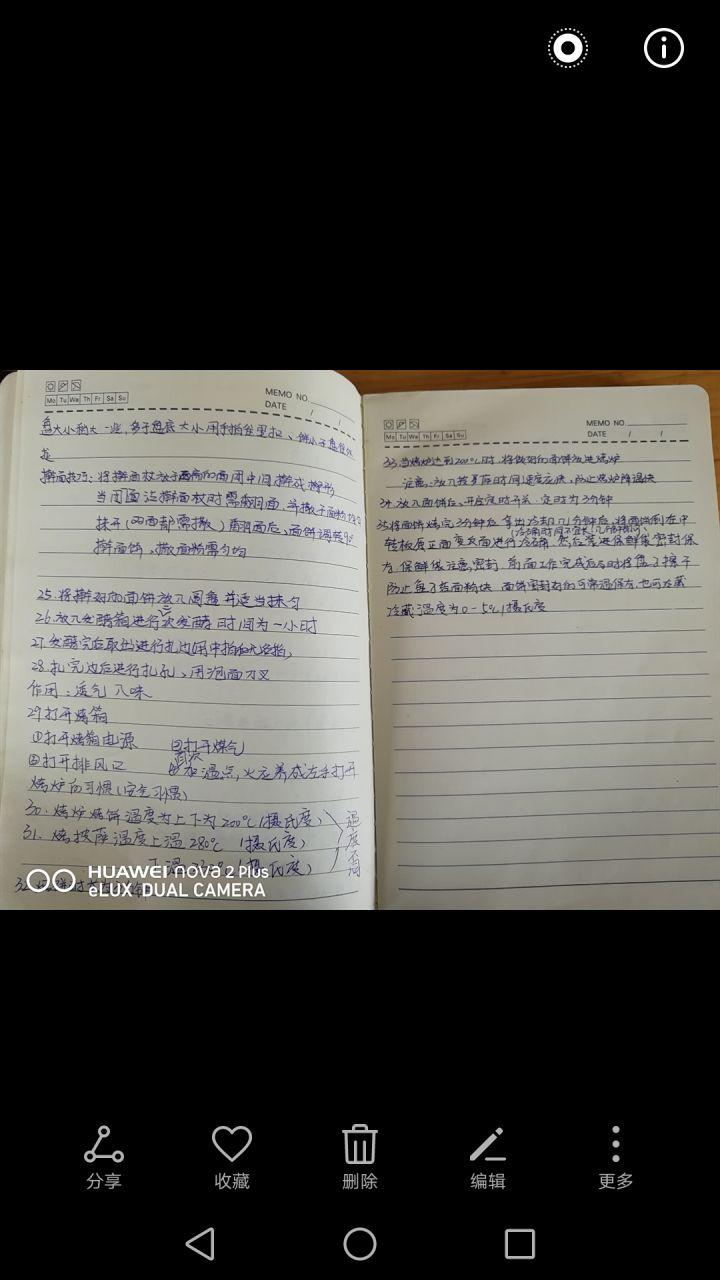 MEMO NO.
DATE / /
Mo Tu We Th Fr Sa Su
盘大小稍大一些,多于盘底大小用手拍
是
擀面技巧:将擀面杖放于面前的面团中间擀成椭形
当团面沾擀面杖时需翻面,并撒干面粉
抹开(两面都需撒)翻面后,面饼调转90°
擀面饼,撒面粉需匀均
25.将擀好的面饼放入圆盘并适当抹匀
26.放入发酵箱进行二次发酵 时间为一小时
27.发酵完后取出进行扎边用中指
28.扎完边后进行扎孔、用泡面刀叉
作用:透气 入味
29打开烤箱
①打开烤箱电源 ②打开煤气
③打开排风口 ④加温点火应养成左手打开
烤炉的习惯(安全习惯)
30.烤炉烤饼温度为上下为200℃(摄氏度)
31.烤披萨温度上温280℃(摄氏度)
下温 (摄氏度)
温度不同
HUAWEI nova 2 Plus
eLUX DUAL CAMERA
MEMO NO.
DATE / /
Mo Tu We Th Fr Sa Su
33.当烤炉达到200℃时,将做好的面饼放进烤炉
注意:放入披萨时间速度应快,防止烤炉降温快
34.放入面饼后、开定时开关,定时为3分钟
35.将面饼烤完3分钟后拿出冷却几分钟后,将面饼倒在中
(冷却时间不宜
转板原正面变反面进行冷却,然后装进保鲜袋密封保
存 保鲜袋注意密封 前面工作完成后及时将盘子擦干
防止盘子结面粉块 面饼密封好的可常温保存,也可冷藏
冷藏温度为0-5℃/摄氏度
分享
收藏
删除
编辑
更多